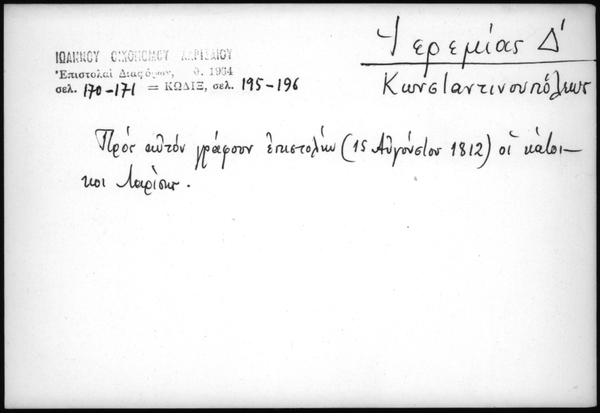 ΙΩΑΝΝΟΥ ΟΙΚΟΝΟΜΟΥ ΛΑΡΙΣΑΙΟΥ
Ἐπιστολαὶ Διαφόρων, θ. 1964
σελ. 170-171 = ΚΩΔΙΞ, σελ. 195-196
Ἱερεμίας Δ'
Κωνσταντινουπόλεως
Πρὸς αὐτόν γράφουν ἐπιστολήν (15 Αὐγούστου 1812) οἱ κάτοι-
κοι Λαρίσης.